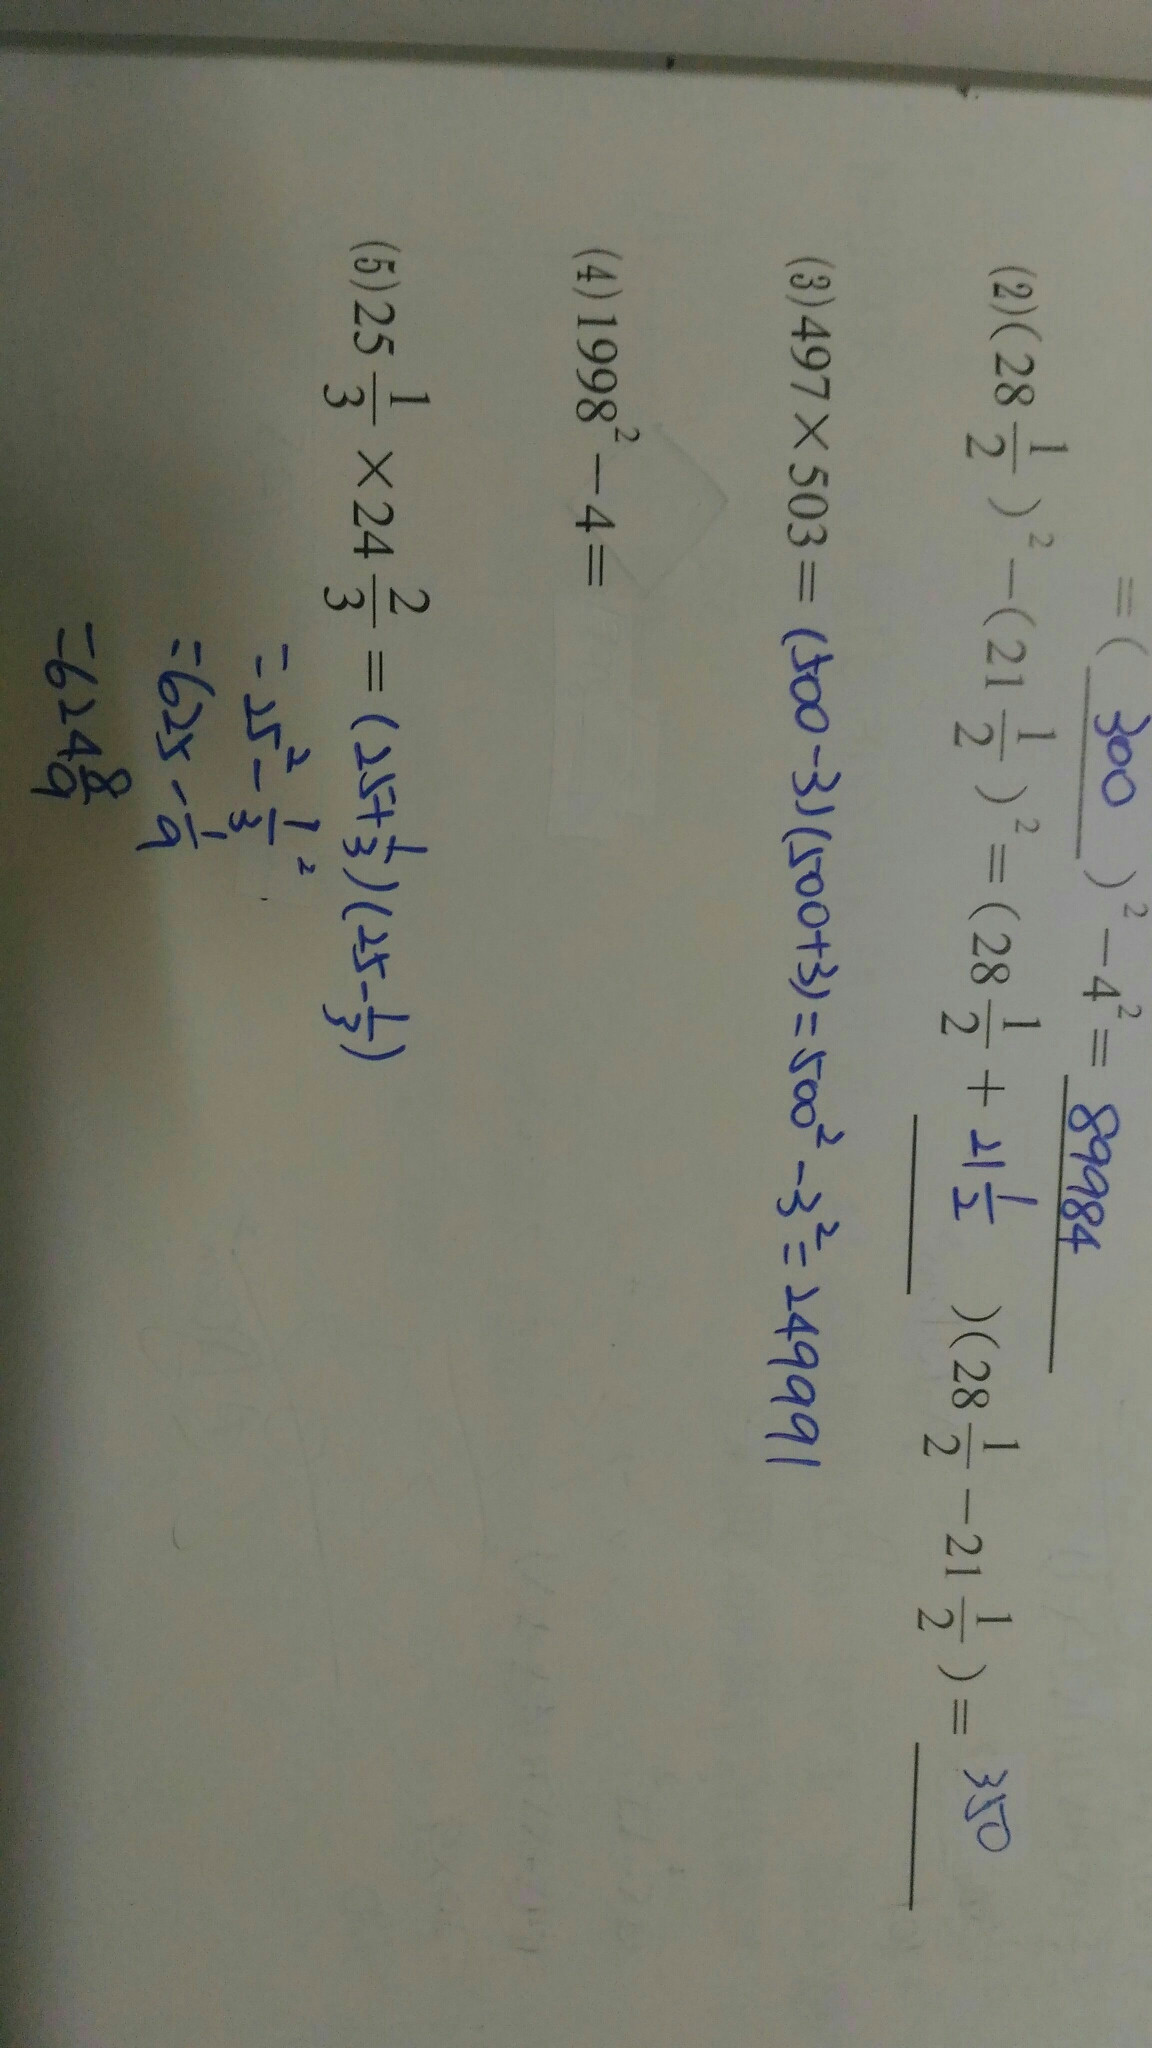 =( 300 )²-4²= 89984
(2)(28 1/2)²-(21 1/2)²=(28 1/2+ 21 1/2 )(28 1/2-21 1/2)= 350
(3)497×503= (500-3)(500+3)=500²-3²=249991
(4)1998²-4=
(5)25 1/3×24 2/3= (25+1/3)(25-1/3)
=25²-1/3²
=625-1/9
=624 8/9